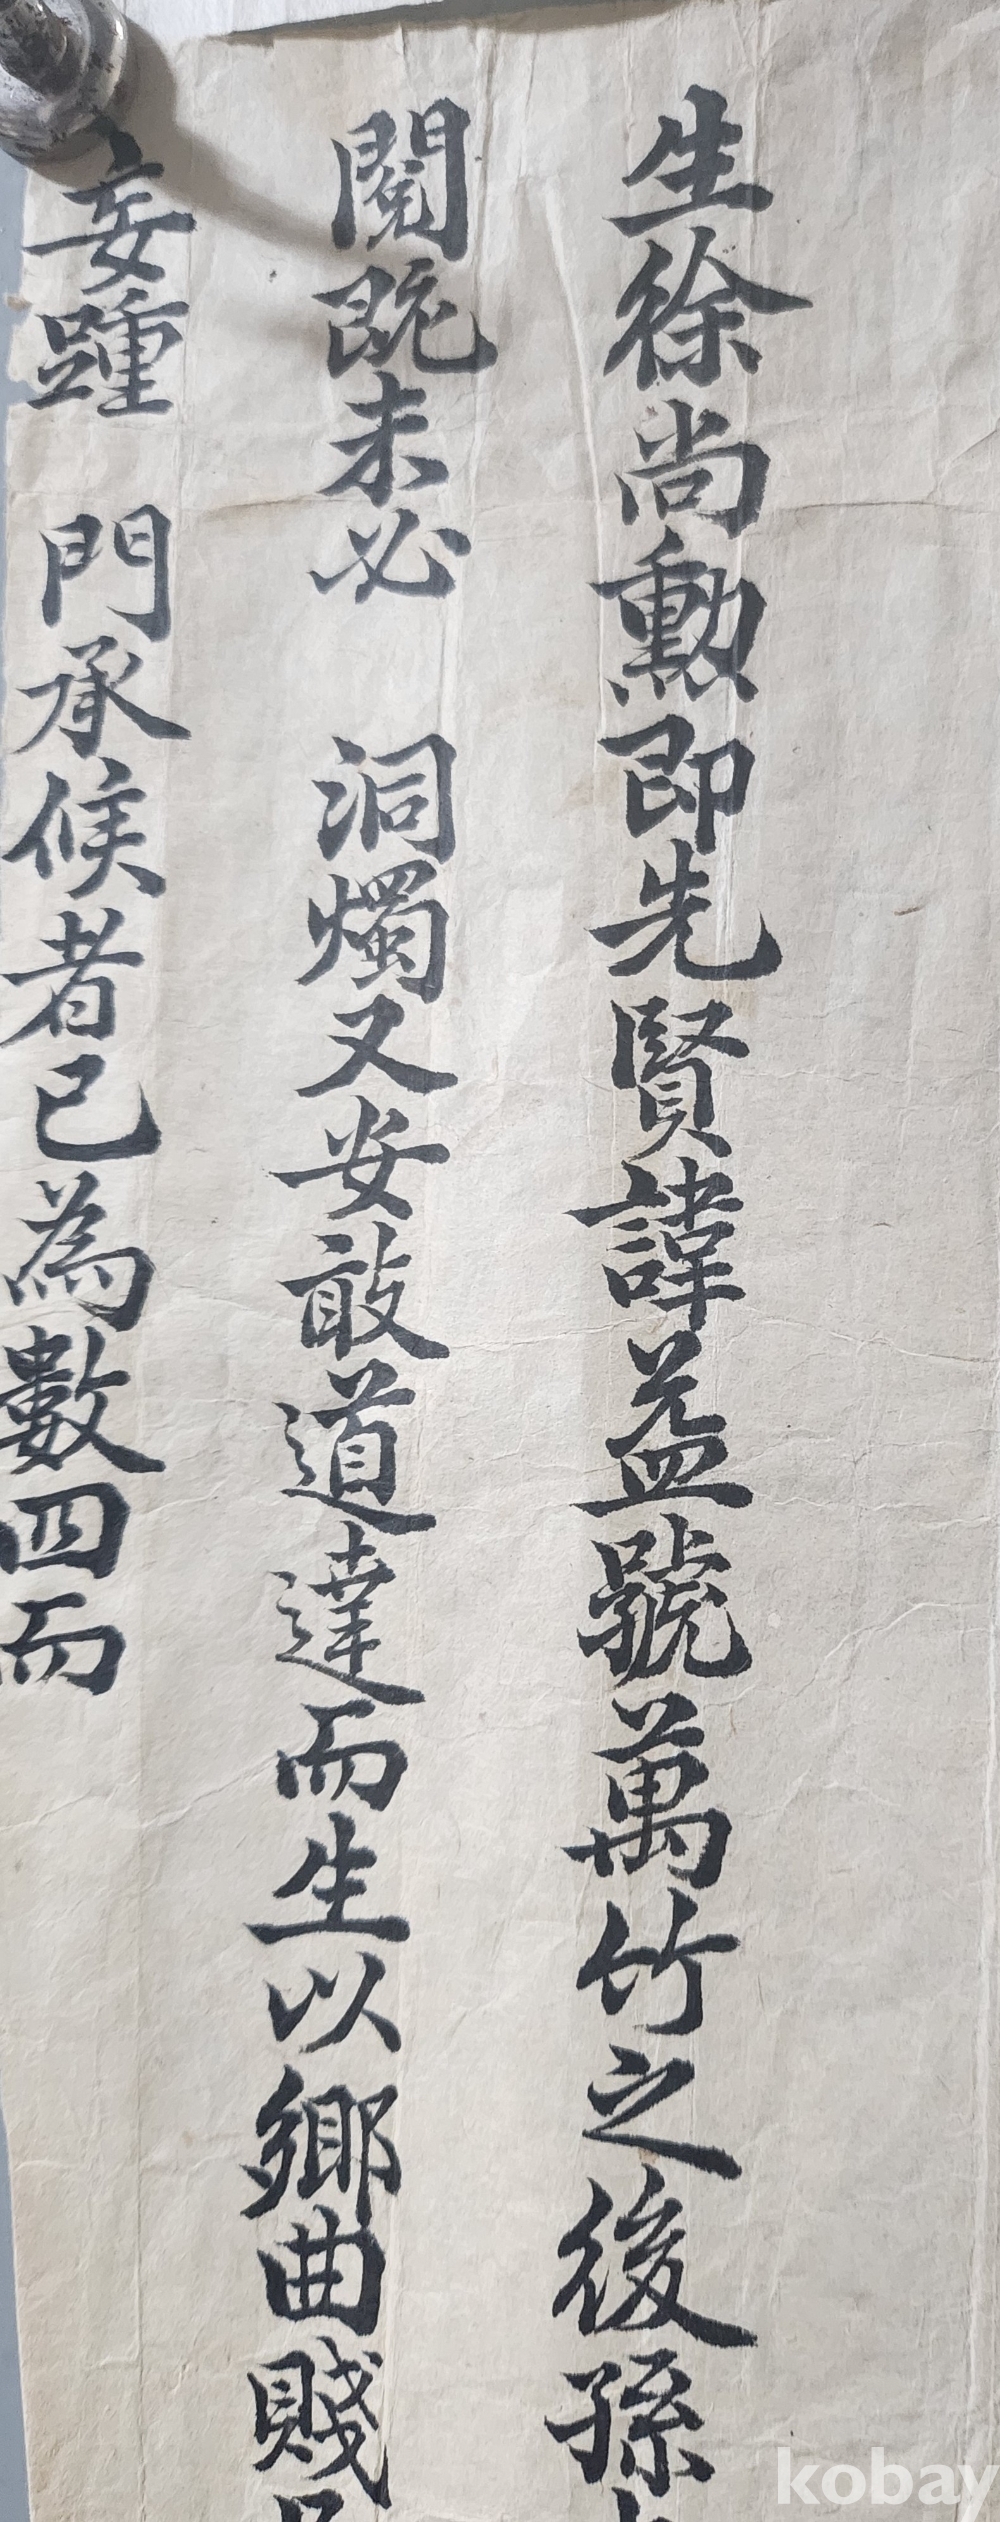 生徐尚勳即先賢諱益號萬竹之後孫
閥旣未必 洞燭又安敢道達而生以鄕曲賤
妄踵 門承候者已為數四而
kobay